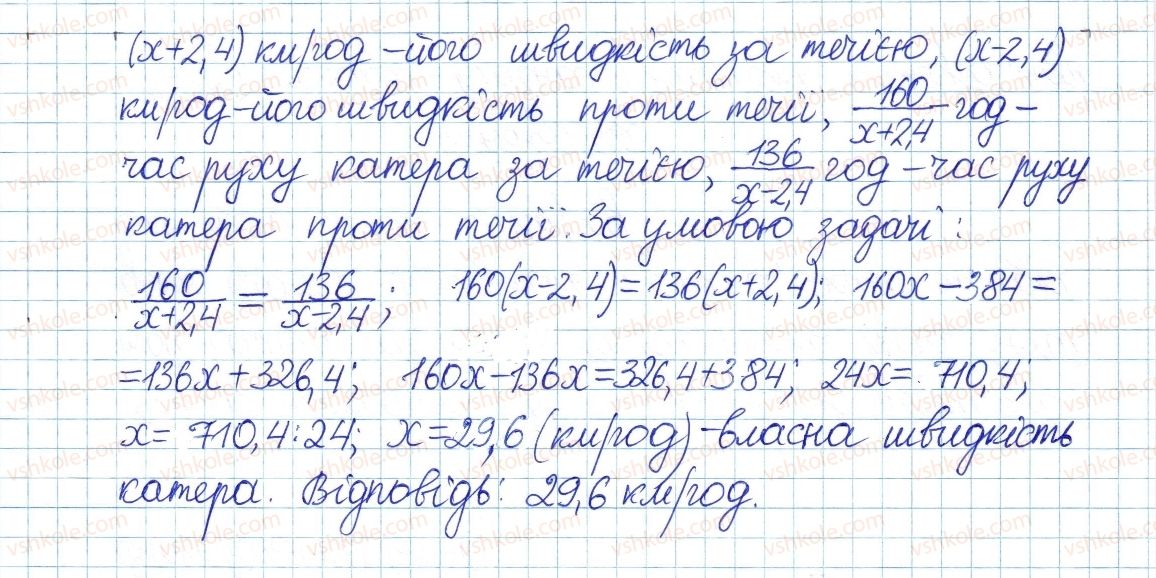 (x+2,4) км/год – його швидкість за течією, (x-2,4)
км/год – його швидкість проти течії, 160/(x+2,4) год –
час руху катера за течією, 136/(x-2,4) год – час руху
катера проти течії. За умовою задачі:
160/(x+2,4) = 136/(x-2,4); 160(x-2,4)=136(x+2,4); 160x-384=
=136x+326,4; 160x-136x=326,4+384; 24x=710,4;
x=710,4:24; x=29,6 (км/год) – власна швидкість
катера. Відповідь: 29,6 км/год.